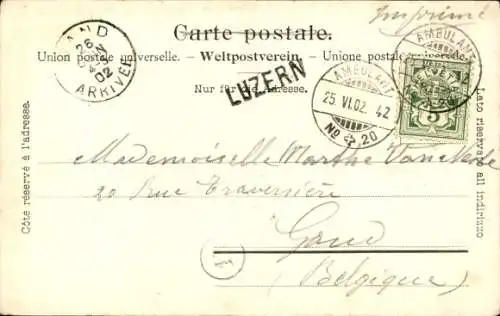 Carte postale.
Imprimé
Union postale universelle. – Weltpostverein. – Unione postale universale.
Nur für die Adresse.
LUZERN
GAND
26
JUIN
02
ARRIVEE
AMBULANT
25. VI. 02. 42
No 20
AMBULANT
No 20
HELVETIA
5
Côte réservé à l'adresse.
Lato riservato all indirizzo
Mademoiselle Martha
20 Rue Traversière
Gand
(Belgique)
1